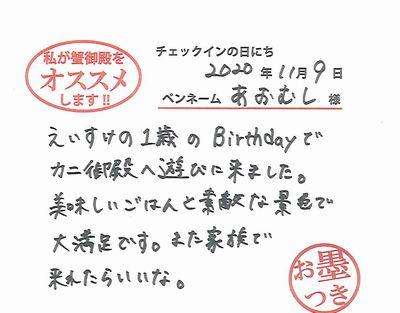 私が蟹御殿を
オススメ
します!!
チェックインの日にち
2020年11月9日
ペンネーム あおむし 様
えいすけの1歳のBirthdayで
カニ御殿へ遊びに来ました。
美味しいごはんと素敵な景色で
大満足です。また家族で
来れたらいいな。
お墨
つき